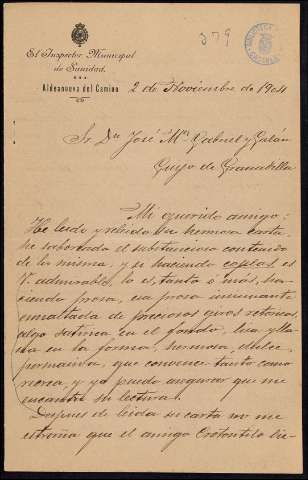 379
El Inspector Municipal
de Sanidad.
Aldeanueva del Camino
2 de Noviembre de 1904
Sr Dn José Mª Gabriel y Galán
Guijo de Granadilla
Mi querido amigo:
He leido y releido su hermosa carta,
he saboreado el substancioso contenido
de la misma, y si haciendo coplas es
V. admirable, lo es, tanto ó mas, ha-
ciendo prosa, esa prosa insinuante
esmaltada de preciosos giros retóricos,
algo satírica en el fondo, lisa y lla-
na en la forma, hermosa, dulce,
persuasiva, que convence tanto como
recrea, y ya puedo asegurar que me
encanta su lectura.
Despues de leida su carta no me
extraña que el amigo Crotontilo